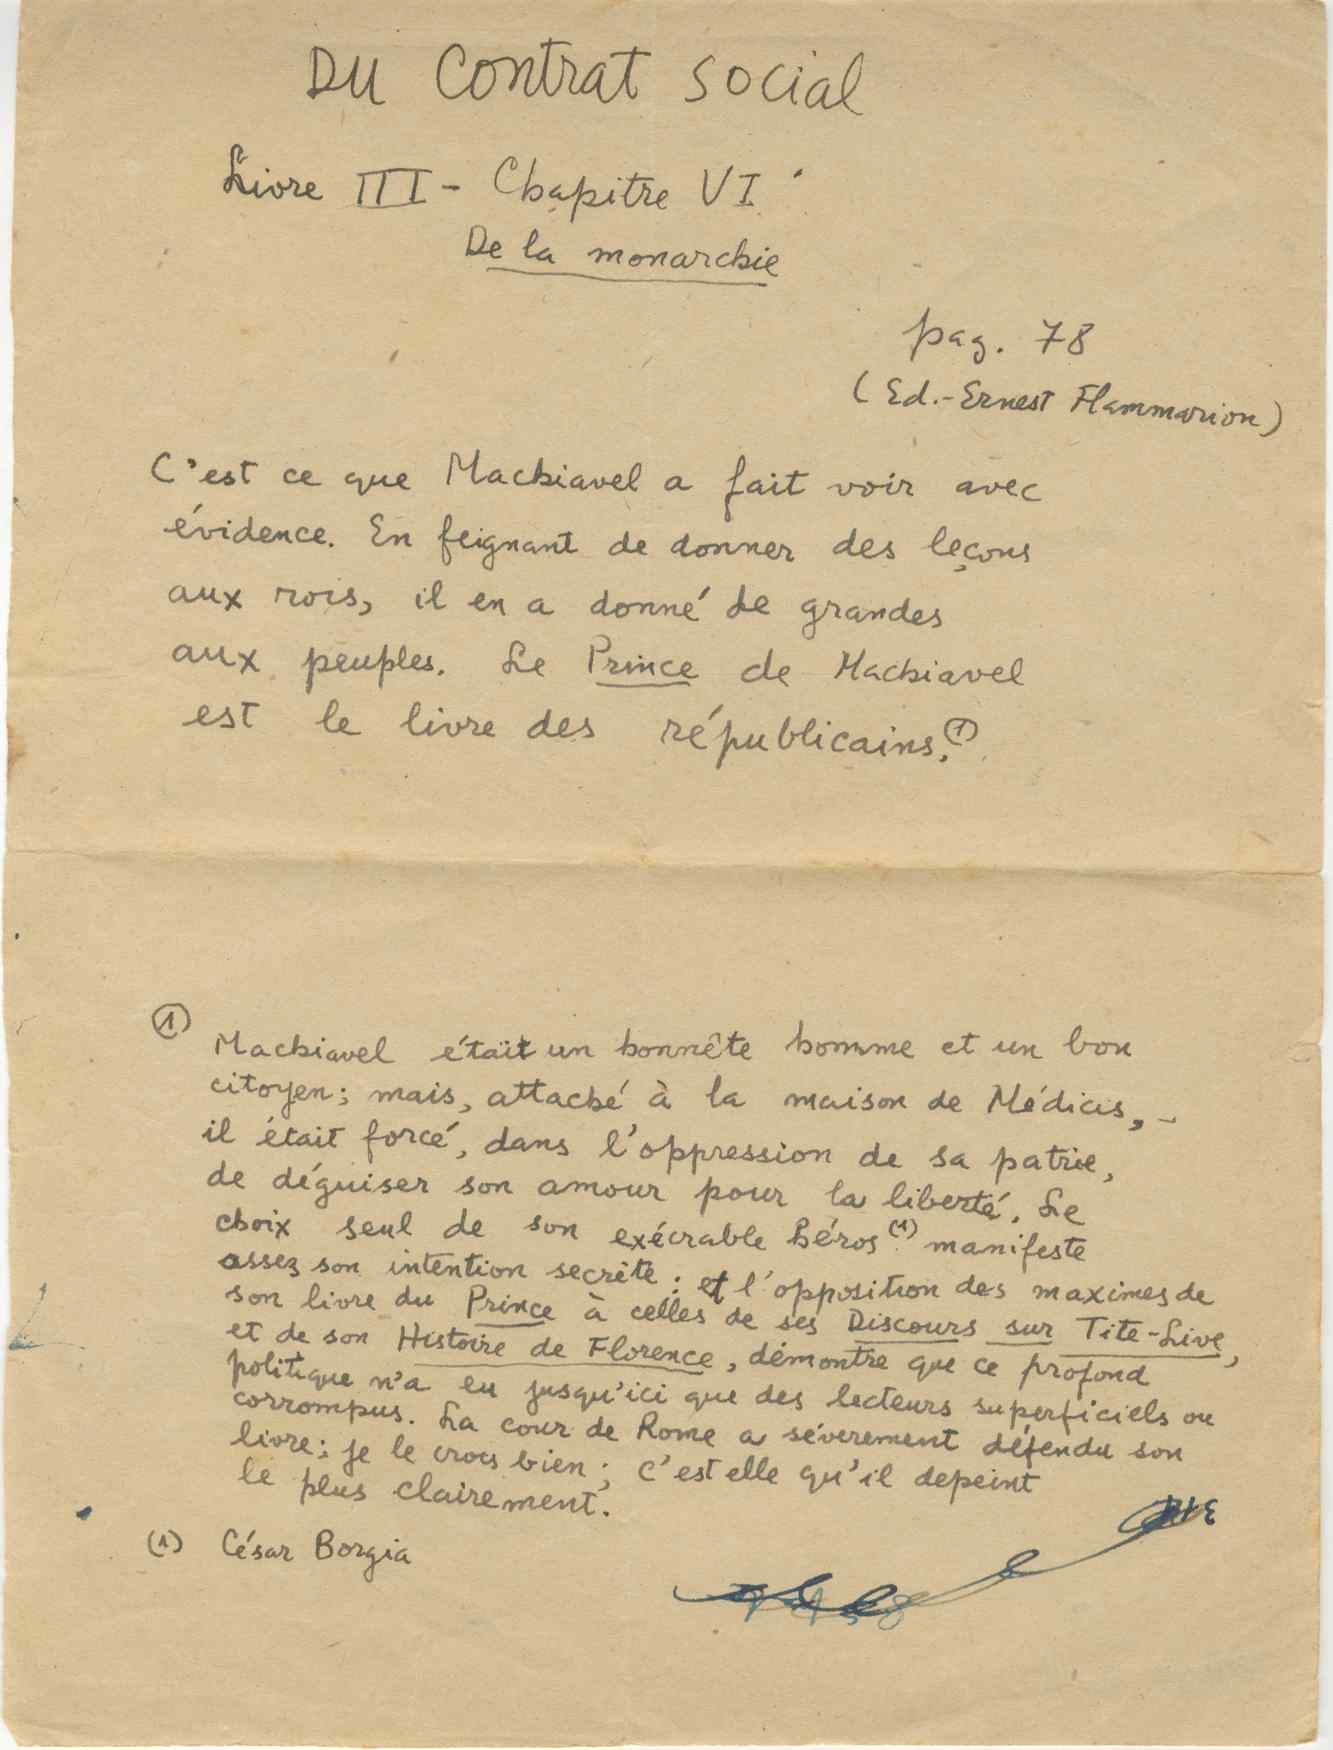 DU Contrat social
Livre III - Chapitre VI
De la monarchie
pag. 78
(Ed.-Ernest Flammarion)
C'est ce que Machiavel a fait voir avec
évidence. En feignant de donner des leçons
aux rois, il en a donné de grandes
aux peuples. Le Prince de Machiavel
est le livre des républicains.(1)
(1) Machiavel était un honnête homme et un bon
citoyen; mais, attaché à la maison de Médicis, -
il était forcé, dans l'oppression de sa patrie,
de déguiser son amour pour la liberté. Le
choix seul de son exécrable héros (1) manifeste
assez son intention secrète; et l'opposition des maximes de
son livre du Prince à celles de ses Discours sur Tite-Live,
et de son Histoire de Florence, démontre que ce profond
politique n'a eu jusqu'ici que des lecteurs superficiels ou
corrompus. La cour de Rome a séverement défendu son
livre; je le crois bien; c'est elle qu'il depeint
le plus clairement.
(1) César Borgia